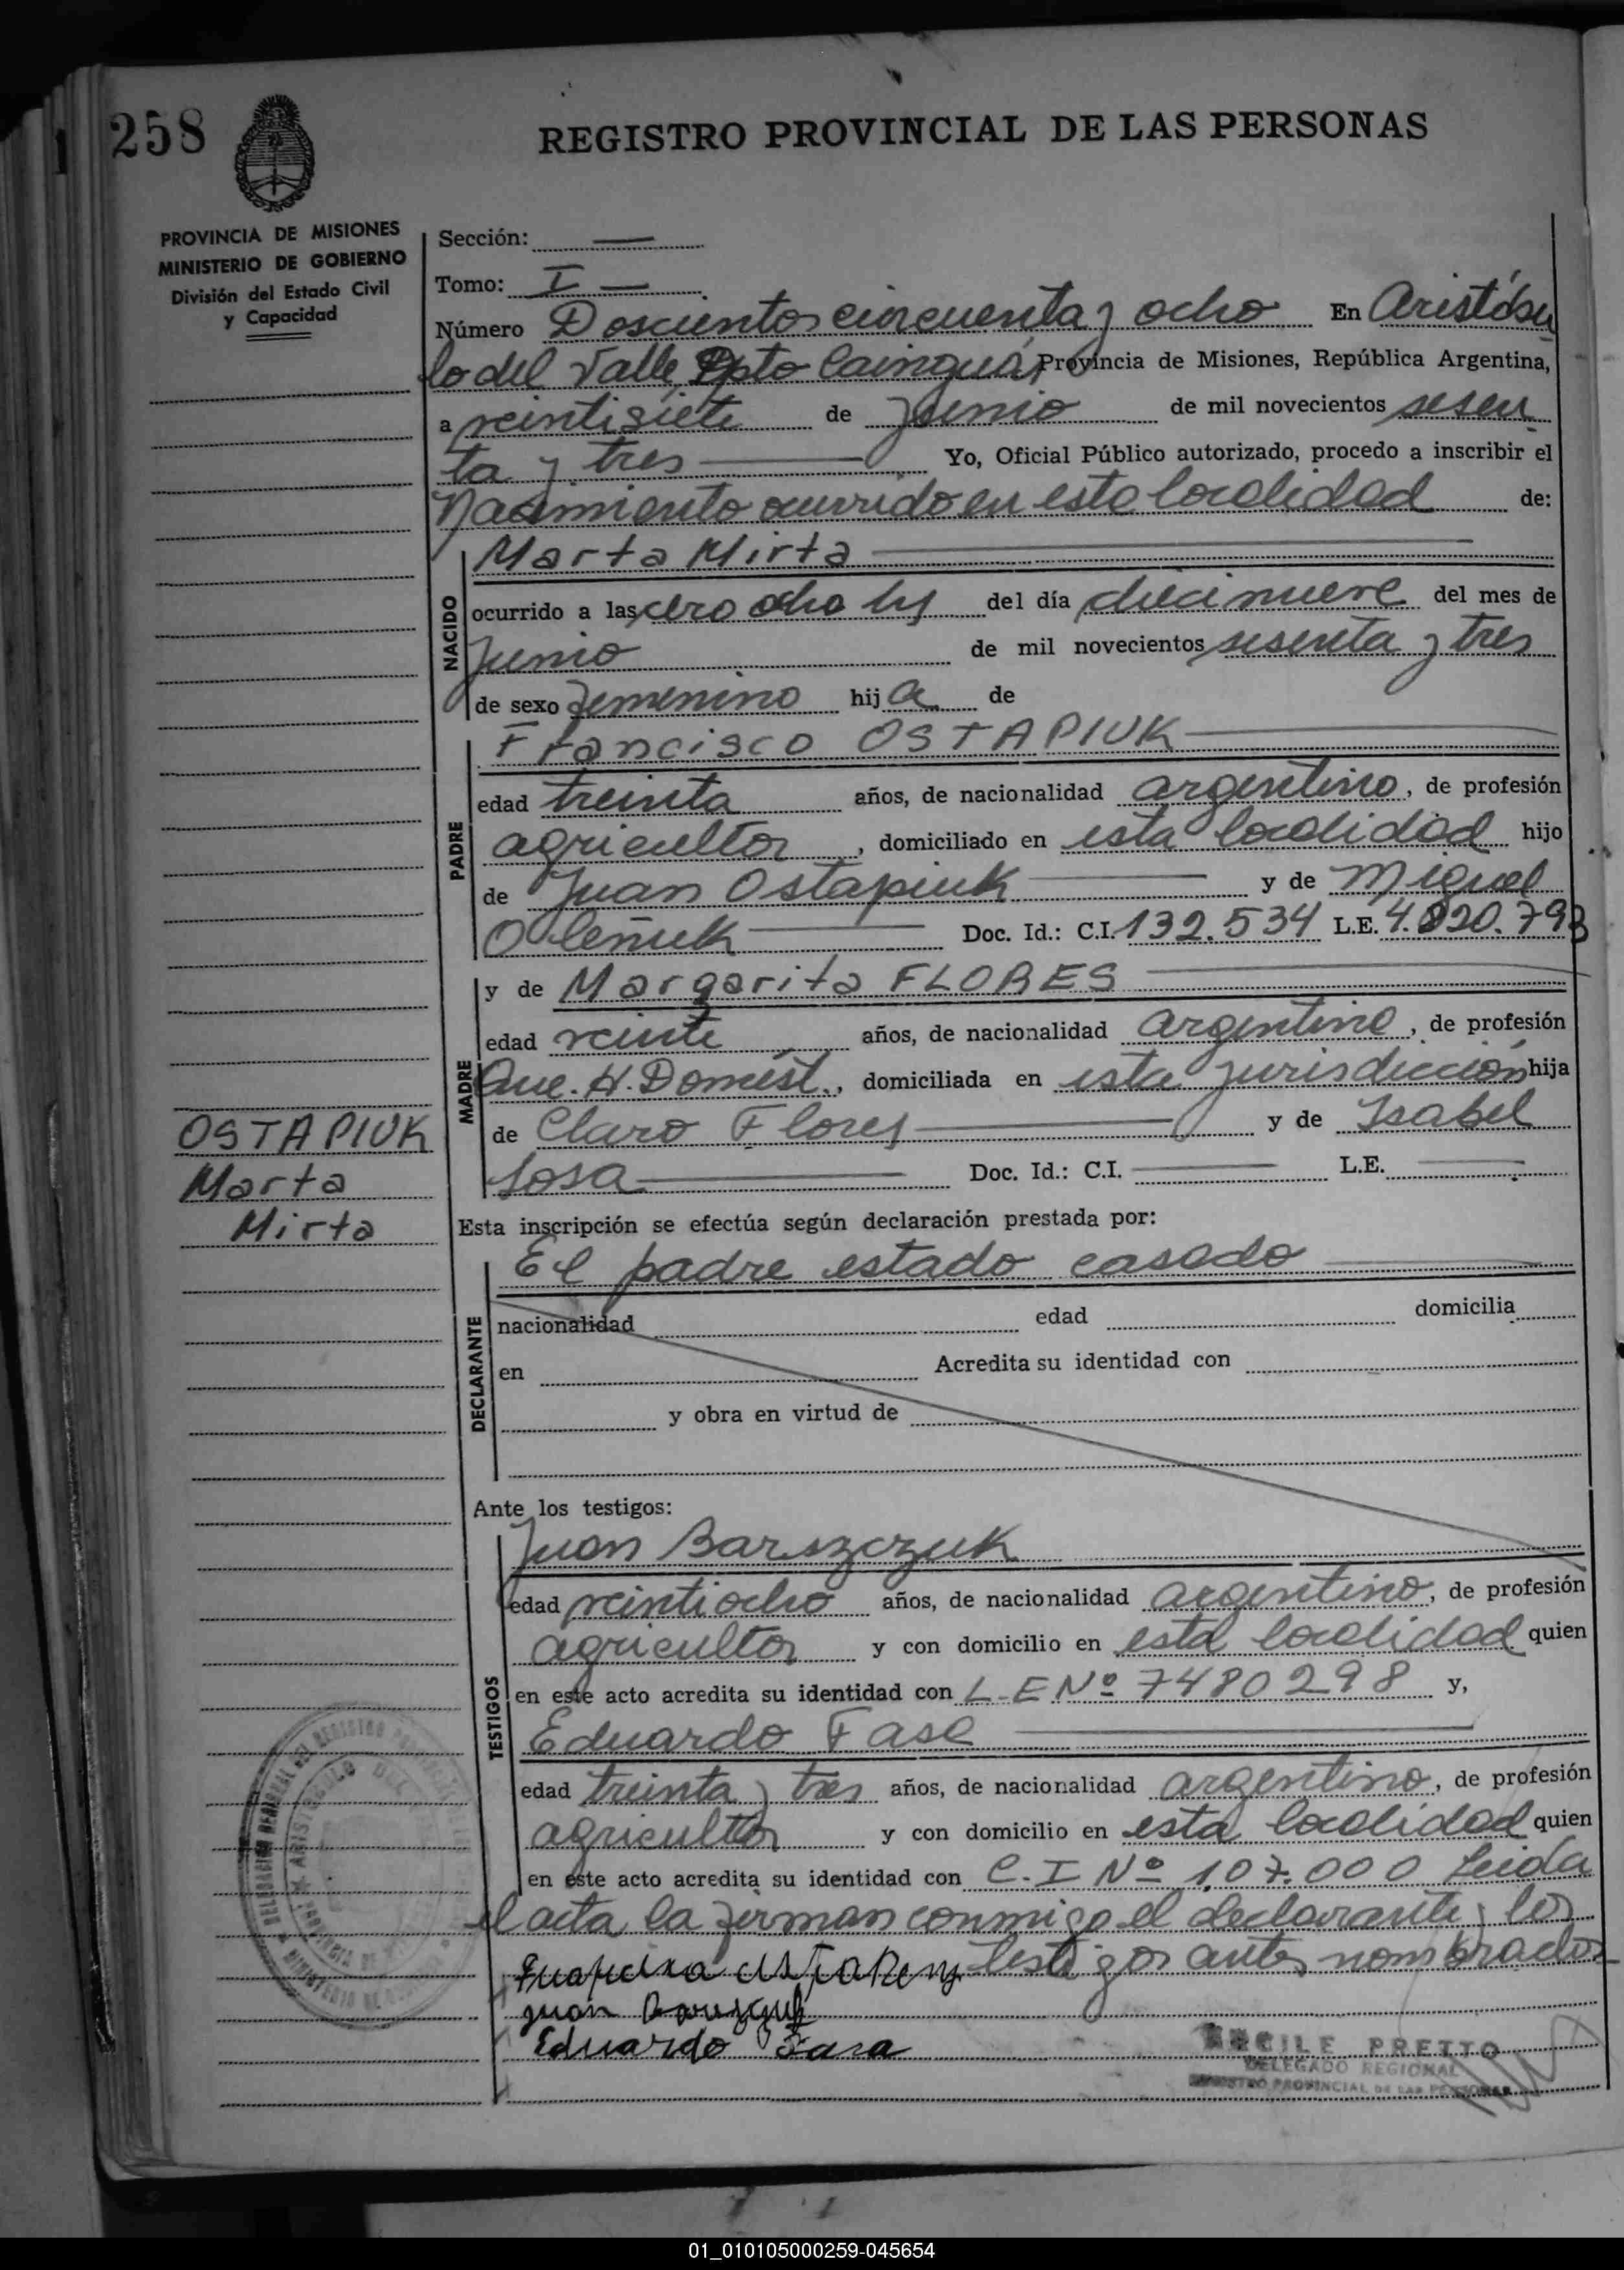 258
REGISTRO PROVINCIAL DE LAS PERSONAS
PROVINCIA DE MISIONES
MINISTERIO DE GOBIERNO
División del Estado Civil
y Capacidad
Sección: —
Tomo: I —
Número Doscientos cincuenta y ocho En Aristóbu
lo del Valle, Dpto Cainguá, Provincia de Misiones, República Argentina,
a veintisiete de Junio de mil novecientos sesen
ta y tres — Yo, Oficial Público autorizado, procedo a inscribir el
Nacimiento ocurrido en esta localidad de:
NACIDO
Marta Mirta —
ocurrido a las cero ocho hs del día diecinueve del mes de
Junio de mil novecientos sesenta y tres
de sexo femenino hij a de
PADRE
Francisco OSTAPIUK —
edad treinta años, de nacionalidad argentino, de profesión
agricultor, domiciliado en esta localidad hijo
de Juan Ostapiuk — y de Miguel
Oleñuk — Doc. Id.: C.I. 132.534 L.E. 4.820.793
MADRE
y de Margarita FLORES —
edad veinte años, de nacionalidad argentina, de profesión
Que. H. Domést., domiciliada en esta jurisdicción hija
de Claro Flores — y de Isabel
Sosa — Doc. Id.: C.I. — L.E. —
OSTAPIUK
Marta
Mirta
Esta inscripción se efectúa según declaración prestada por:
DECLARANTE
El padre estado casado —
nacionalidad edad domicilia
en Acredita su identidad con
y obra en virtud de
Ante los testigos:
TESTIGOS
Juan Barszczuk
edad veintiocho años, de nacionalidad argentino, de profesión
agricultor y con domicilio en esta localidad quien
en este acto acredita su identidad con L.E Nº 7480298 y,
Eduardo Fase —
edad treinta y tres años, de nacionalidad argentino, de profesión
agricultor y con domicilio en esta localidad quien
en este acto acredita su identidad con C.I Nº 107.000 Leida
el acta la firman conmigo el declarante y los
testigos antes nombrados
Juan
Eduardo Fasa
PRETTO
DELEGADO REGIONAL
REGISTRO PROVINCIAL DE LAS PERSONAS
01_010105000259-045654